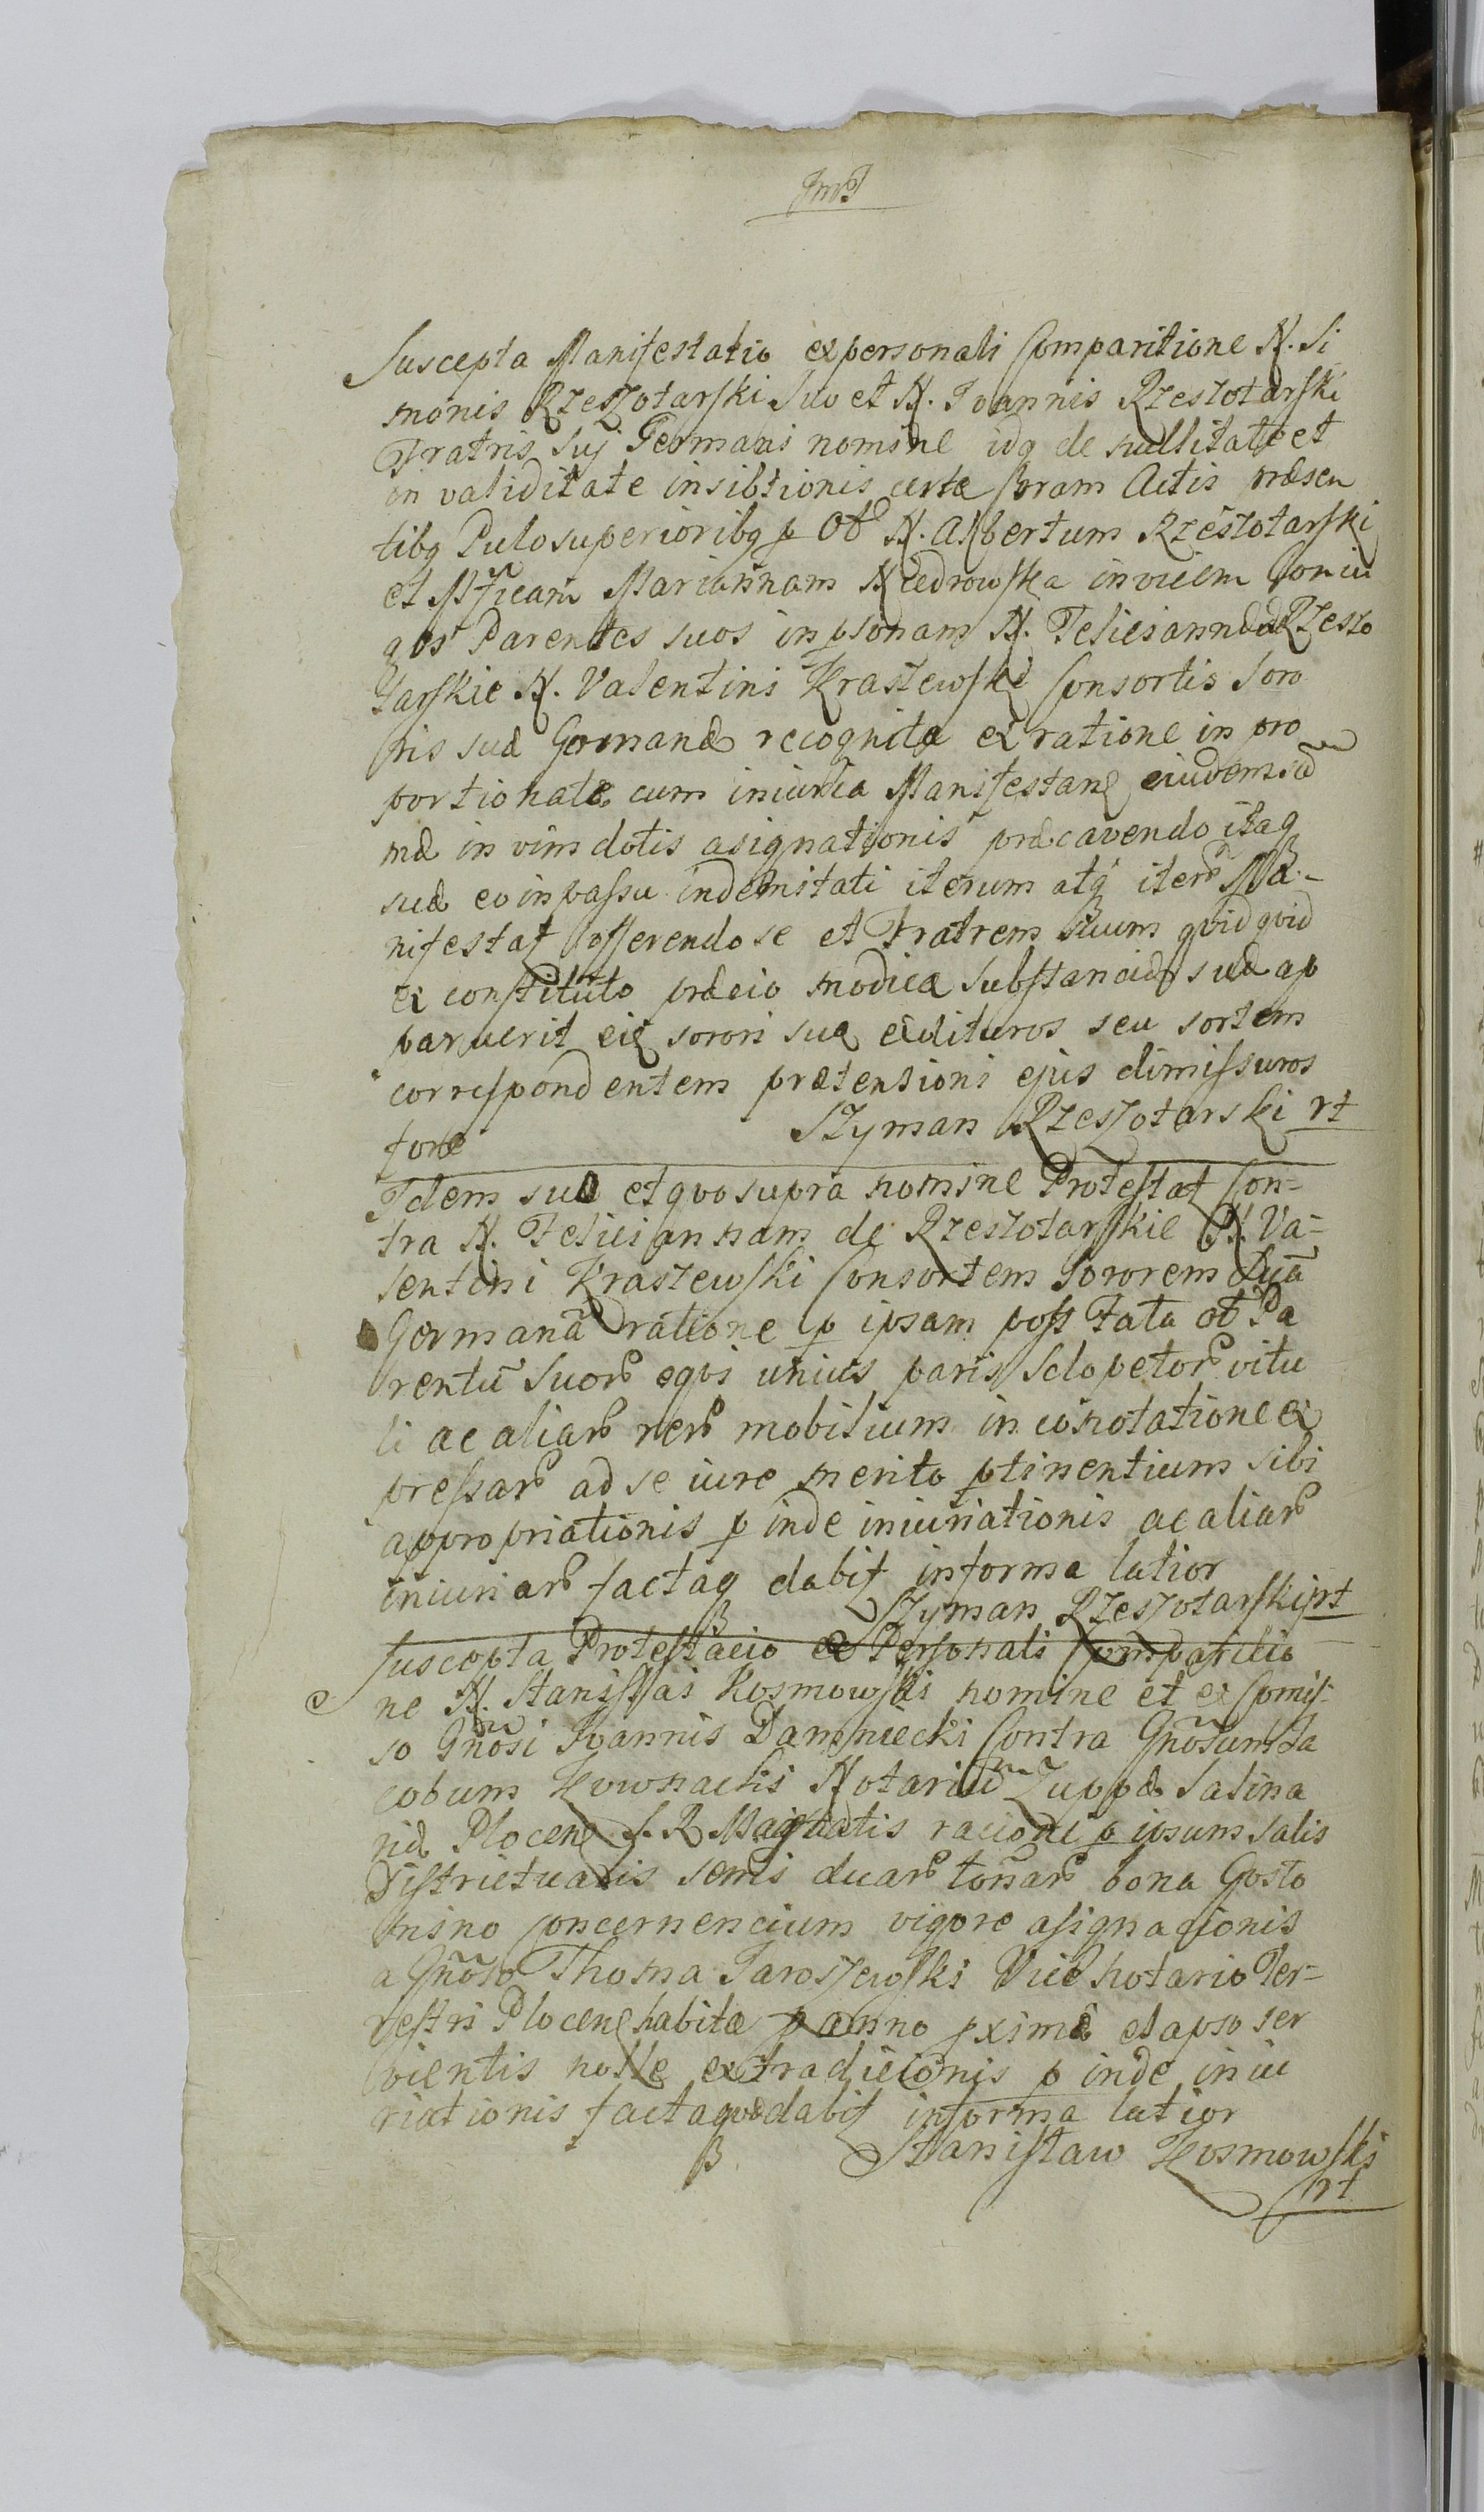 Suscepta Manifestatio ex personali Comparitione N. Si
monis Rzeszotarski Suo et N. Joannis Rzeszotarski
Fratris Suj Germani nomine idq de nullitate et
in validitate inscibtionis certæ Coram Actis præsen
tibq Pulo superioribq p Ol N. Albertum Rzeszotarski
et Mficam Mariannam Niedrowska invicem Coniu
ges Parentes suos in psonam N. Felicianna de Rzeszo
tarskie N. Valentini Kraszewski Consortis Soro
ris suæ Germanæ recognitæ ex ratione in pro
portionatæ cum iniuria Manifestan eiudem sũ
mæ in vim dotis asignationis præcavendo itaq
suæ eo in passu indemnitati iterum atq iterũ Ma-
nifestat offerendo se et Fratrem Suum quid quid
ex constituto præcio modicæ substanciæ suæ ap
paruerit eiq sorori suæ eddituros seu sortem
correspondentem prætensioni ejus dimissuros
fore
Szyman Rzeszotarski rt
Idem suo et quo supra nomine Protestat Con=
tra N. Feliciannam de Rzeszotarskie N. Va=
lentini Kraszewski Consortem Sororem Suã
Germanã ratione p ipsam post Fata ol Pa
rentũ Suor equi unius paris Sclopetor vitu
li ac aliar rer mobilium in conotatione ex
pressar ad se iure merito ptinentium sibi
appropriationis p inde iniuriationis ac aliar
iniuriar factaq dabit in forma latior
Szyman Rzeszotarski rt
Suscepta Protestacio ex Personali Comparicio
ne N. Stanislai Kosmowski nomine et ex Comis-
so Gnosi Joannis Damniecki Contra Gnosum Ja
cobum Kownacki Notariũ Zuppæ Salina
riæ Plocen S. R. Maiestatis racione p ipsum salis
Districtualis semis duar tonar bona Gosto
mino concernencium vigore asignacionis
a Gnoso Thoma Jaroszewski Vice notario Ter=
restri Plocen habitæ p anno pxime elapso ser
vientis nolle extradicionis p inde iniu
riationis factaque dabit in forma latior
Stanisław Kosmowski
rt